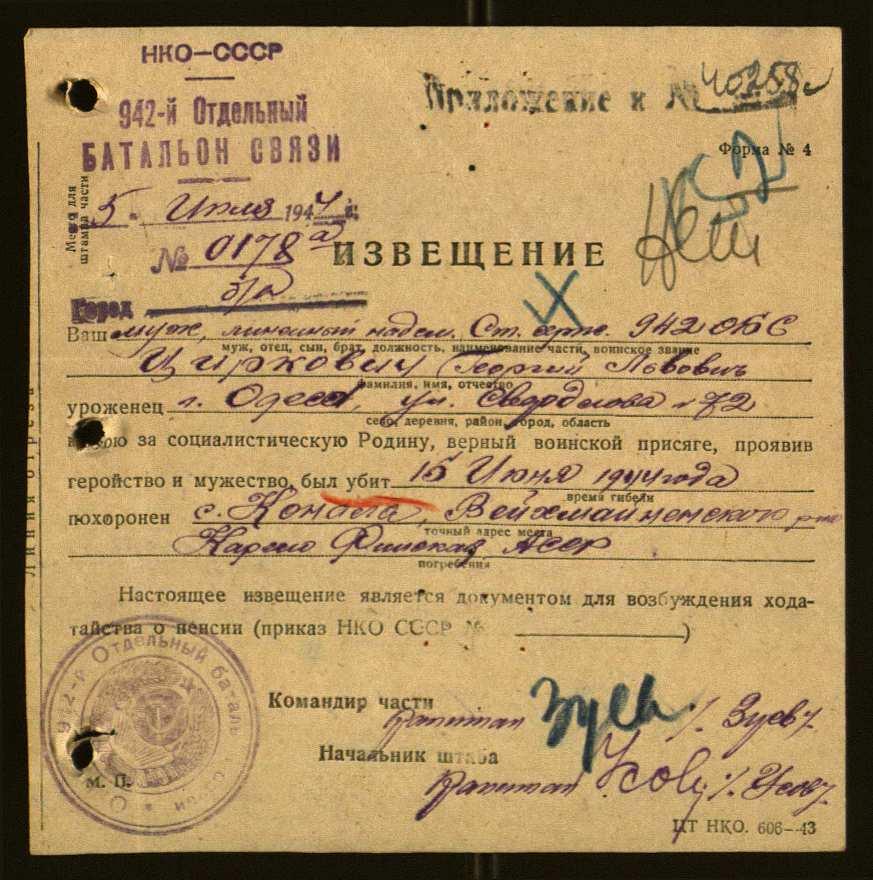 НКО—СССР
942-й Отдельный
БАТАЛЬОН СВЯЗИ
Приложение к № 40258с
Форма № 4
Место для
штампа части
5 " Июля 1944 г.
№ 0178
ИЗВЕЩЕНИЕ
Нет
Город
Ваш муж, линейный надсм. Ст. серж. 942 ОБС
муж, отец, сын, брат, должность, наименование части, воинское звание
Циркович Георгий Львович
фамилия, имя, отчество
уроженец г. Одесса, ул. Свердлова 72
село, деревня, район, город, область
за социалистическую Родину, верный воинской присяге, проявив
геройство и мужество, был убит 15 Июня 1944 года
время гибели
похоронен с. Конала,
точный адрес места
Карело Финская АССР
погребения
Линия отреза
Настоящее извещение является документом для возбуждения хода-
тайства о пенсии (приказ НКО СССР № )
942-й Отдельный баталь связи
Командир части
капитан Зуев /Зуев/.
Начальник штаба
капитан Усов /Усов/.
М. П.
ЦТ НКО. 606—43